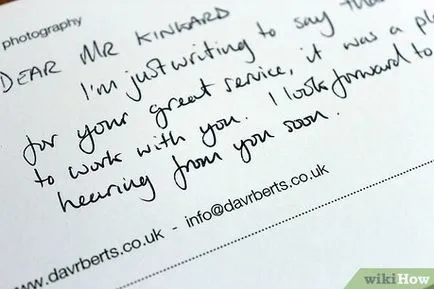 photography
DEAR MR KINKARD
I'm just writing to say
for your great service, it was a
to work with you. I look forward to
hearing from you soon.
www.davrberts.co.uk - info@davrberts.co.uk
wikiHow